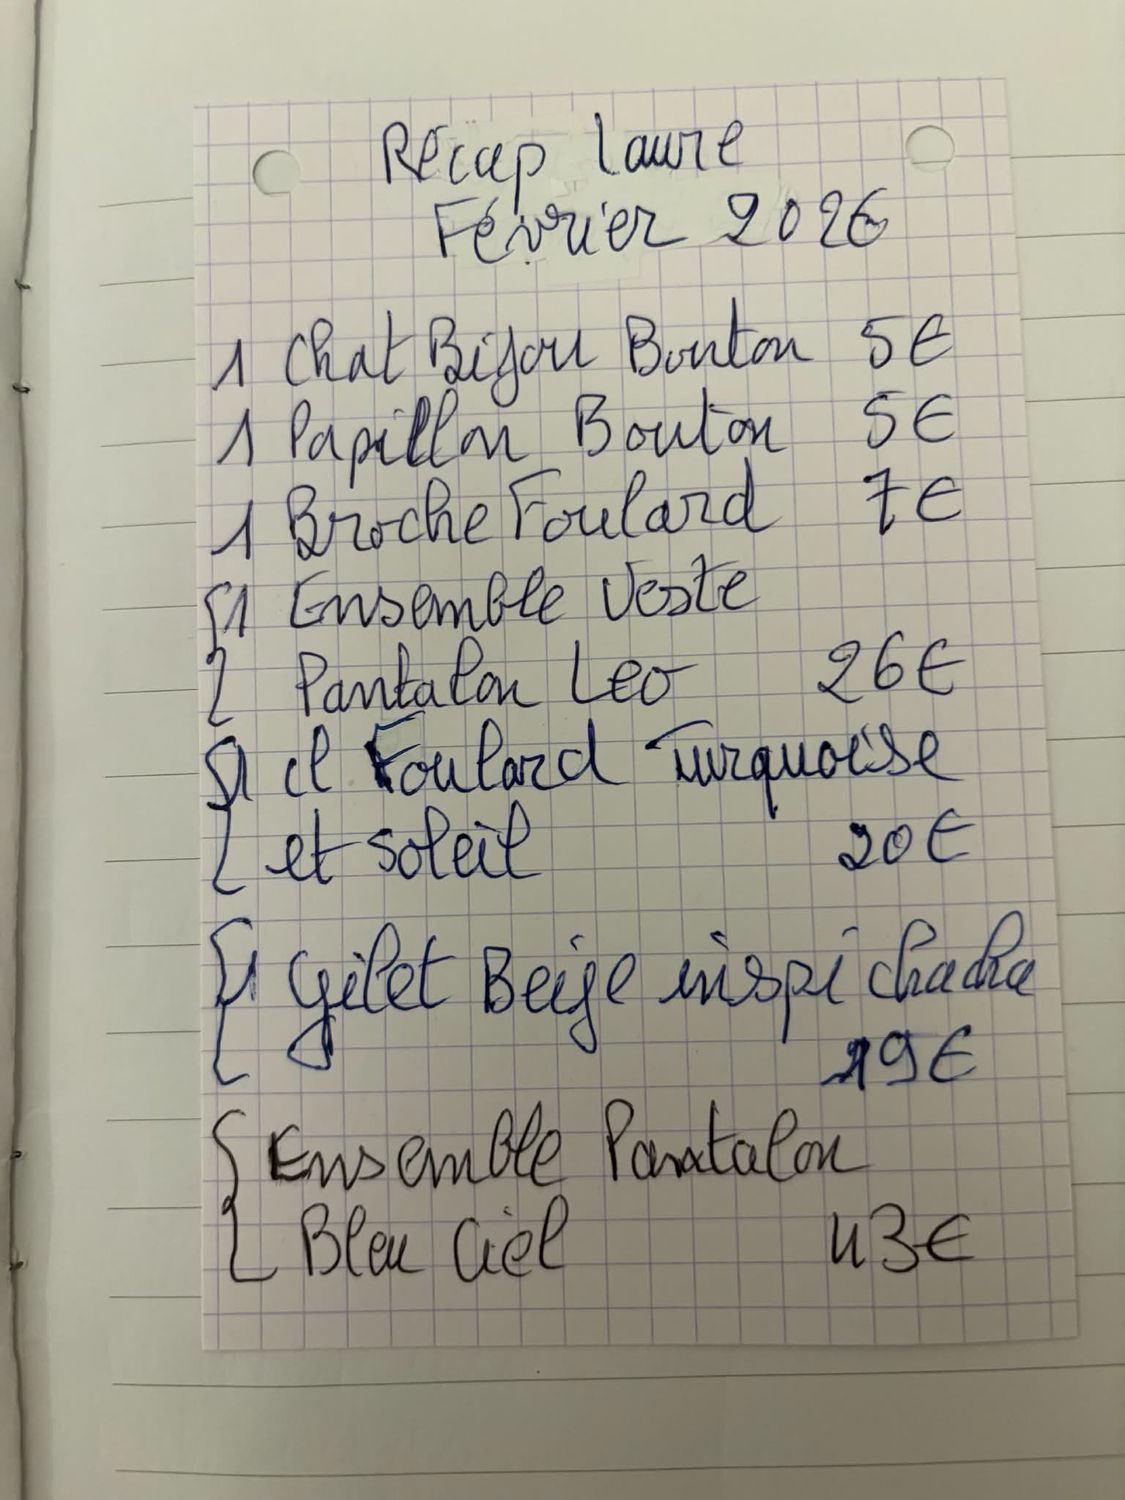 Récap Laure
Février 2026
1 Chat Bijou Bouton 5€
1 Papillon Bouton 5€
1 Broche Foulard 7€
1 Ensemble Veste
Pantalon Leo 26€
1 cl Foulard Turquoise
et soleil 20€
1 Gilet Beige inspi chacha
19€
Ensemble Pantalon
Bleu Ciel 43€